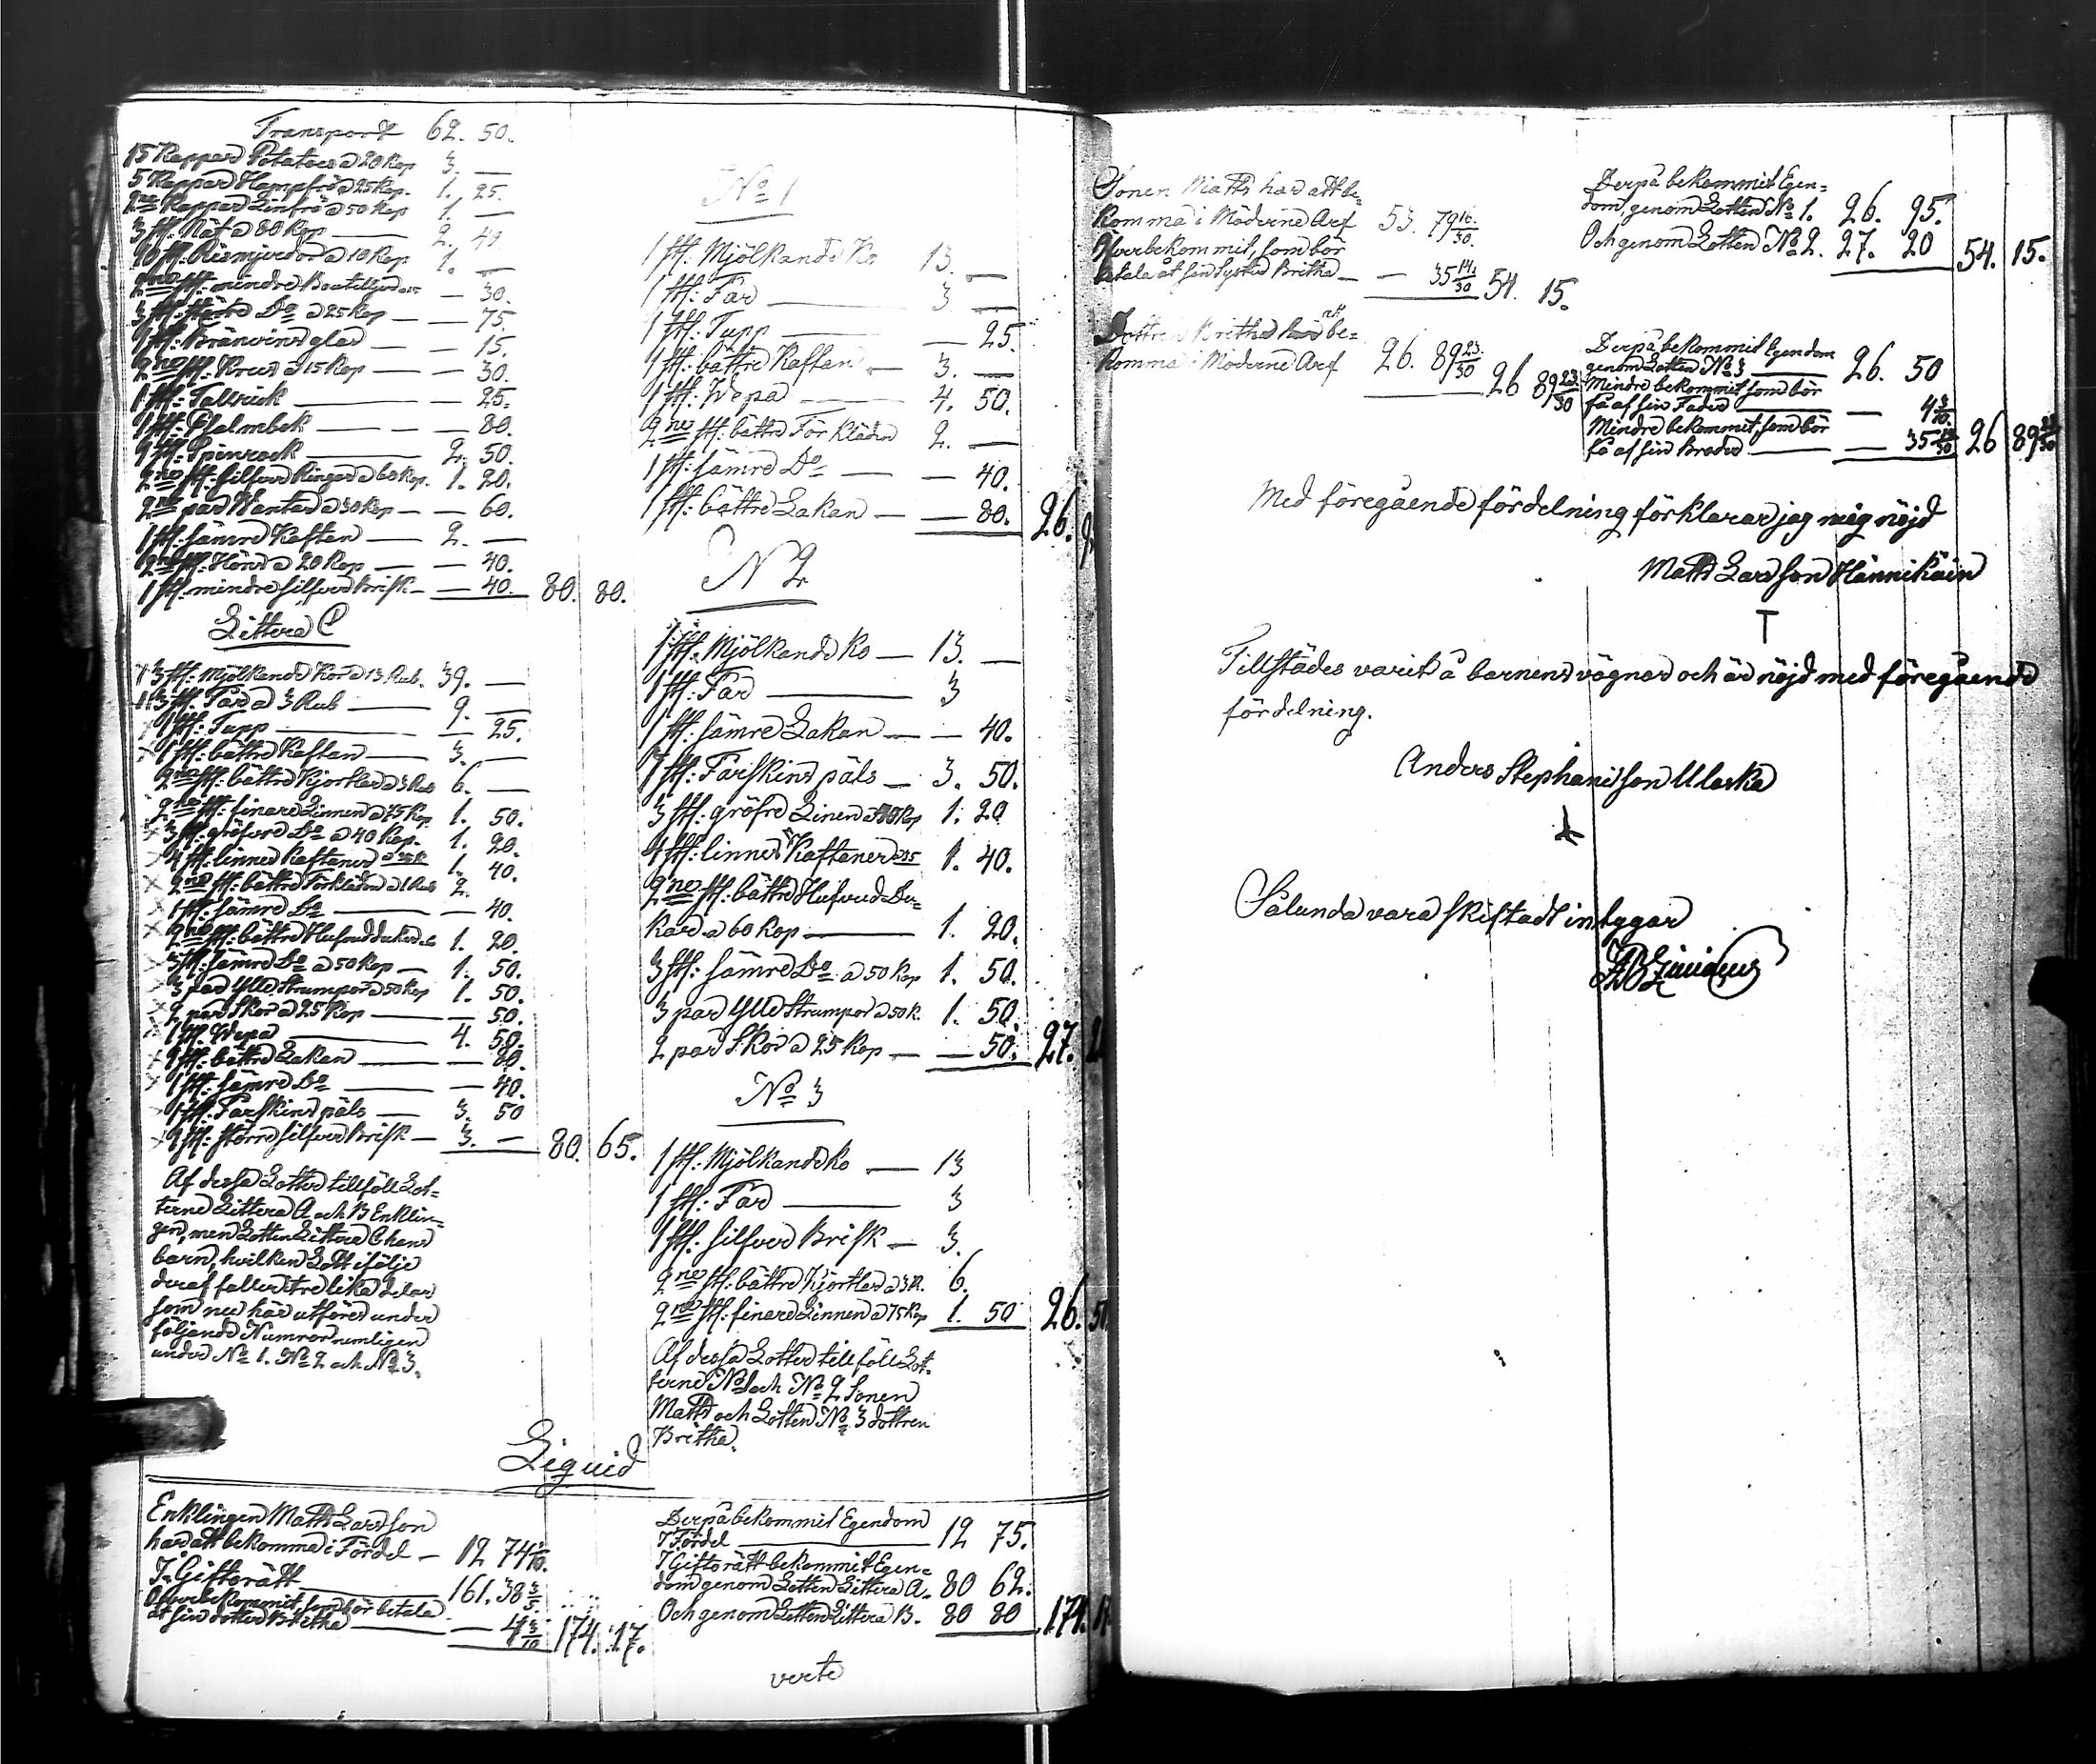 Transport 62. 50.
15 Kappar Potatoes a 20 Kop 3. —
5 Kappar Hampfrö a 25 Kop. 1. 25.
2ne Kappar Linfrö a 50 Kop 1. —
3 st: Nät a 80 Kop — 2. 40
10 st. a 10 Kop. 1. —
2ne st: mindre — 30.
3 st: större Do a 25 Kop — — 75.
1 st: Bränvins glas — — 15.
2ne st: Krus a 15 Kop — — 30.
1 st: Tallrick — 25.
1 st: Psalmbok — — 80.
1 st: Spinrock — 2. 50.
2ne st: silfver Ringar a 60 Kop. 1. 20.
2ne par Wantar a 30 Kop — — 60.
1 st: sämre Kaftan — 2. —
2ne st: Höns a 20 Kop — — 40.
1 st: mindre silfver Brisk — — 40. 80. 80.
Littera C
3 st: Mjölkande Kor a 13 Rub. 39. —
3 st: Får a 3 Rub — 9. —
1 st: Tupp — — 25.
1 st: bättre Kaftan — 3. —
2ne st: bättre Kjortlar a 3 Rub 6. —
2ne st: finare Linnen a 75 Kop. 1. 50.
3 st: gröfvre Do a 40 Kop. 1. 20.
4 st: linnes Kaftaner a 35 K 1. 40.
2ne st: bättre Förkläden a 1 Rub 2.
1 st: sämre Do — — 40.
2ne st: bättre Hufvuddukar 1. 20.
3 st: sämre Do a 50 Kop — 1. 50.
3 par Ylle Strumpor a 50 Kop 1. 50.
2 par Skor a 25 Kop — — 50.
1 st. Wepa — 4. 50.
1 st: bättre Lakan — — 80.
1 st: sämre Do — — 40.
1 st: Fårskins päls — 3. 50
1 st: större silfver Brisk — 3. — 80. 65.
Af dessa Lotter tillföll Lot-
terne Littera A och B Enklin-
gen, men Lotten Littera C hans
barn, hvilken Lott ifölje
deraf faller i tre lika delar
som nu här utföres under
följande Numror nemligen
under No 1. No 2 och No 3.
No 1
1 st: Mjölkande Ko 13. —
1 st: Får — 3 —
1 st: Tupp — — 25.
1 st: bättre Kaftan — 3. —
1 st: Wepa — 4. 50.
2ne st: bättre Förkläden 2. —
1 st: sämre Do — — 40.
1 st: bättre Lakan — — 80. 26.
N 2
1 st: Mjölkande Ko — 13. —
1 st: Får — 3
1 st: sämre Lakan — — 40.
1 st: Fårskins päls — 3. 50.
3 st: gröfre Linen a 40 Kop 1. 20
4 st: linnes Kaftaner a 35 1. 40.
2ne st: bättre Hufvud-Du-
kar a 60 Kop — 1. 20.
3 st: sämre Do a 50 Kop 1. 50.
3 par Ylle Strumpor a 50 K. 1. 50.
2 par Skor a 25 Kop — — 50. 27.
No 3
1 st: Mjölkande Ko — 13
1 st: Får — 3
1 st: silfver Brisk — 3.
2ne st: bättre Kjortlar a 3 R. 6.
2ne st: finare Linnen a 75 Kop 1. 50 26. 50
Af dessa Lotter tillföll Lot-
terne No 1 och No 2 Sonen
Matts och Lotten No 3 dottren
Britha.
Liquid
Enklingen Matts Larsson
har att bekomma i Fördel — 12 74 1/10.
I Giftorätt — 161. 38 3/5.
Öfverbekommit, som bör betala
åt sin dotter Britha — — 4 3/10 174. 17.
Derpå bekommit Egendom
I Fördel — 12 75.
I Giftorätt bekommit Egen-
dom genom Lotten Littera A. 80 62.
Och genom Lotten Littera B. 80 80 174. 17
verte
Sonen Matts har att be-
komma i Möderne Arf 53. 79 16/30.
Öfverbekommit, som bör
betala åt sin Syster Britha — — 35 14/30 54. 15.
Derpå bekommit Egen-
dom, genom Lotten No 1. 26. 95.
Och genom Lotten No 2. 27. 20 54. 15.
Dottren Britha har att be-
komma i Möderne Arf 26. 89 23/30 26 89 23/30
Derpå bekommit Egendom
genom Lotten No 3 — 26. 50
Mindre bekommit som bör
få af sin Fader — — 4 3/10.
Mindre bekommit, som bör
få af sin Broder — — 35 14/30 26 89 23/30
Med föregående fördelning förklarar jag mig nöjd
Matts Larsson Hännikäin
T
Tillstädes varit å barnens vägnar och är nöjd med föregående
fördelning.
Anders Stephansson Ulaska
Sålunda vara skiftadt intygar